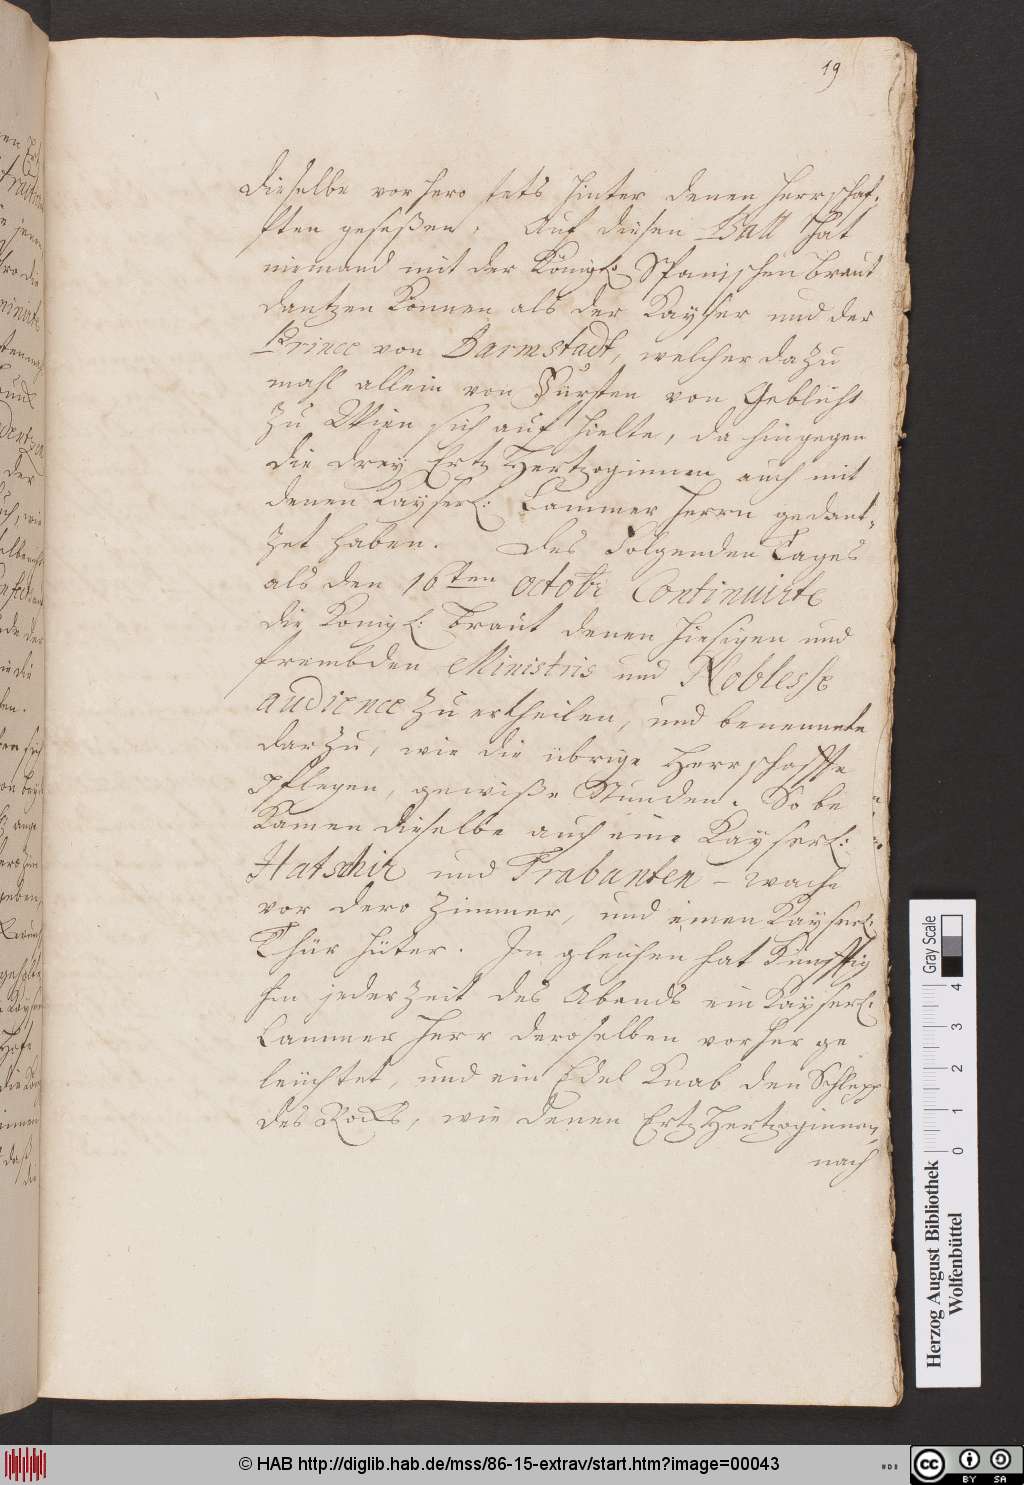 19
dieselbe vorhero stets hinter denen Herrschaf-
fften geseßen. Auf diesen Ball hat
niemand mit der Königl: Spanischen Braut
dantzen können als der Kayser und der
Prince von Darmstadt, welcher dazu
mahl allein von Fürsten von Geblüht
zu Wien sich auf hielte, da hingegen
die drey Ertz Hertzoginnen auch mit
denen Kayserl: Cammer Herrn gedant-
zet haben. Des folgenden Tages
als den 16ten octobr Continuirte
die Königl: Braut denen hiesigen und
frembden Ministris und Noblesse
audience zu ertheilen, und benennete
darzu, wie die übrige Herrschafft
pflegen, gewiße Stunden. So be
kamen dieselbe auch eine Kayserl:
Hatschir und Trabanten-wache
vor dero Zimmer, und einen Kayserl:
Thür hüter. In gleichen hat künfftig
hin jederzeit des Abends ein Kayserl:
Cammer Herr deroselben vorher ge
leuchtet, und ein Edel Knab den Schlepp
des Rocks, wie denen Ertz Hertzoginnen,
nach
Herzog August Bibliothek
Wolfenbüttel
Gray Scale
0 1 2 3 4
© HAB http://diglib.hab.de/mss/86-15-extrav/start.htm?image=00043
cc BY SA